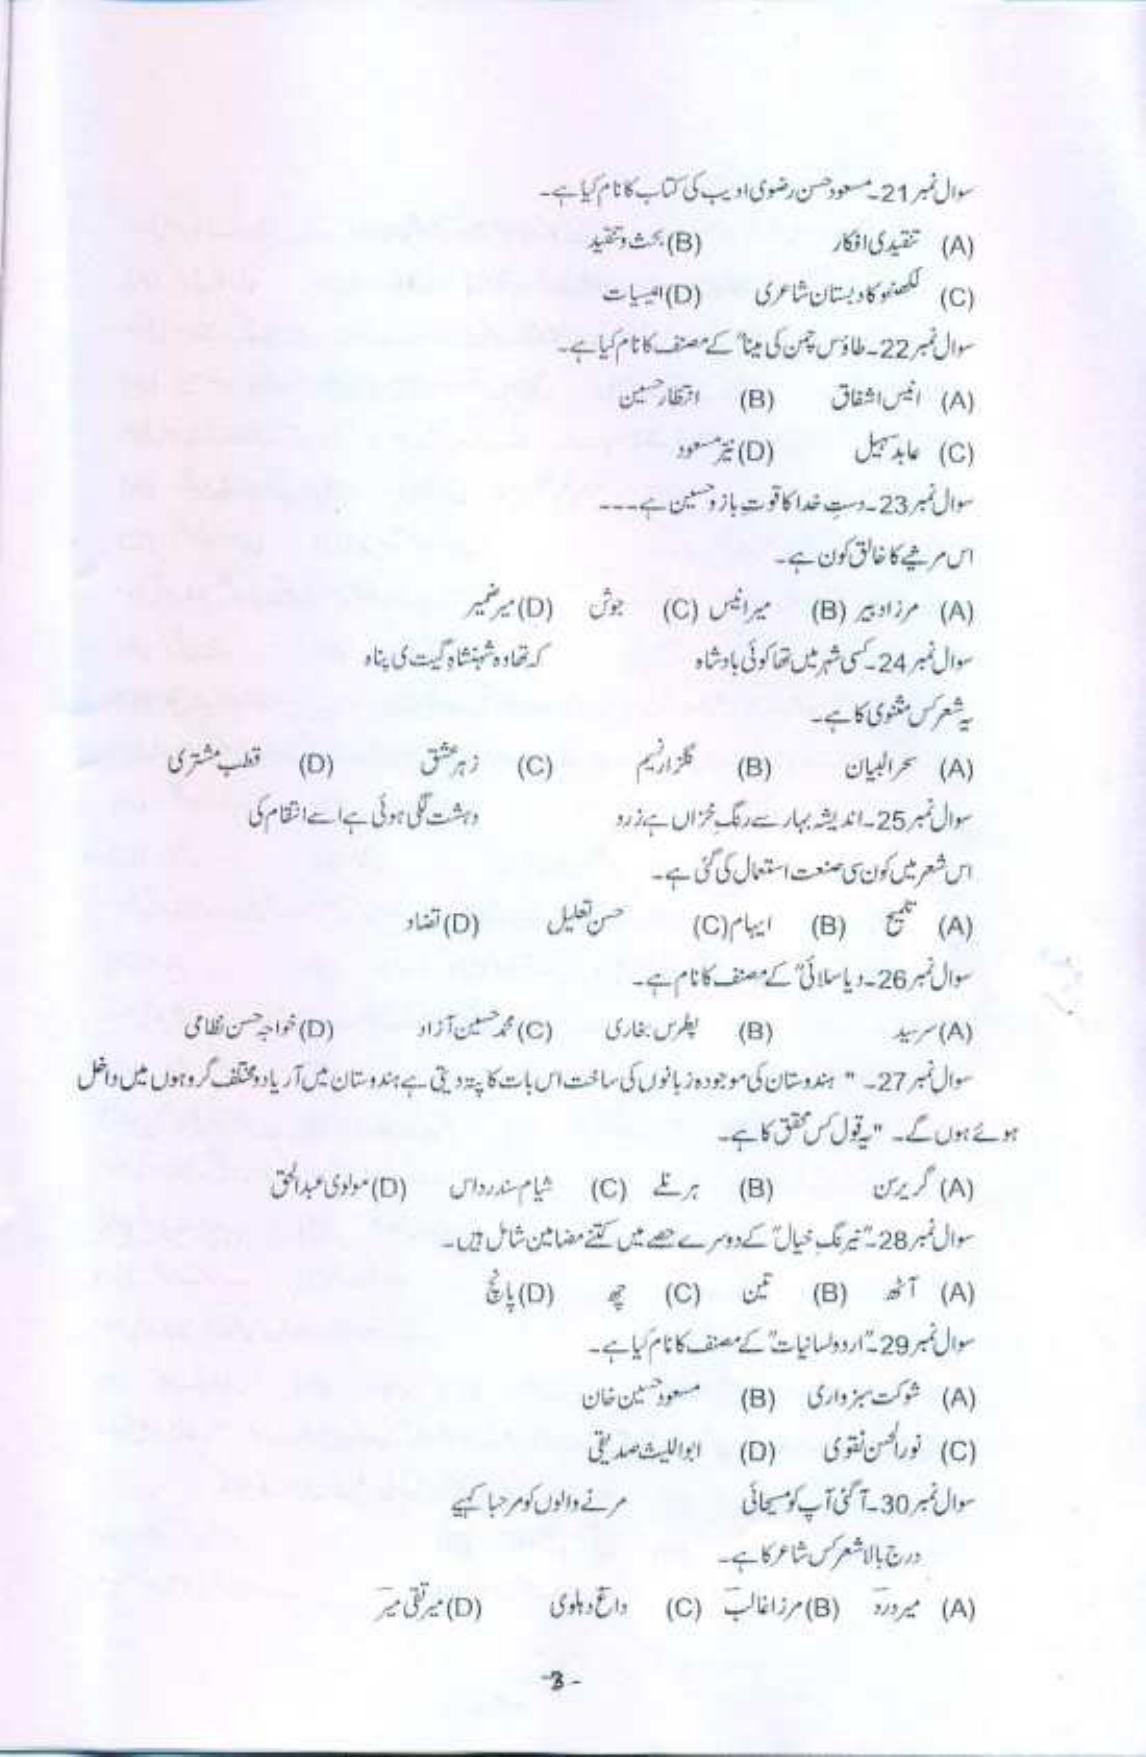 سوال نمبر 21۔ مسعود حسن رضوی ادیب کی کتاب کا نام کیا ہے۔
(A) تنقیدی افکار (B) بحث و تنقید
(C) لکھنؤ کا دبستان شاعری (D) انیسیات
سوال نمبر 22۔ طاؤس چمن کی مینا" کے مصنف کا نام کیا ہے۔
(A) انیس اشفاق (B) انتظار حسین
(C) عابد سہیل (D) نیّر مسعود
سوال نمبر 23۔ دستِ خدا کا قوتِ بازو حسین ہے۔۔۔
اس مرثیے کا خالق کون ہے۔
(A) مرزا دبیر (B) میر انیس (C) جوش (D) میر ضمیر
سوال نمبر 24۔ کسی شہر میں تھا کوئی بادشاہ کہ تھا وہ شہنشاہِ گیت ی پناہ
یہ شعر کس مثنوی کا ہے۔
(A) سحر البیان (B) گلزار نسیم (C) زہر عشق (D) قطب مشتری
سوال نمبر 25۔ اندیشہ بہار سے رنگِ خزاں ہے زرد وہشت لگی ہوئی ہے اسے انتقام کی
اس شعر میں کون سی صنعت استعمال کی گئی ہے۔
(A) تلمیح (B) ایہام (C) حسن تعلیل (D) تضاد
سوال نمبر 26۔ دیا سلائی" کے مصنف کا نام ہے۔
(A) سرسید (B) پطرس بخاری (C) محمد حسین آزاد (D) خواجہ حسن نظامی
سوال نمبر 27۔ " ہندوستان کی موجودہ زبانوں کی ساخت اس بات کا پتہ دیتی ہے ہندوستان میں آریا دو مختلف گروہوں میں داخل
ہوئے ہوں گے۔ " یہ قول کس محقق کا ہے۔
(A) گریرسن (B) ہرنلے (C) شیام سندر داس (D) مولوی عبدالحق
سوال نمبر 28۔ "نیرنگِ خیال" کے دوسرے حصے میں کتنے مضامین شامل ہیں۔
(A) آٹھ (B) تین (C) چھ (D) پانچ
سوال نمبر 29۔ "اردو لسانیات" کے مصنف کا نام کیا ہے۔
(A) شوکت سبزواری (B) مسعود حسین خان
(C) نور الحسن نقوی (D) ابواللیث صدیقی
سوال نمبر 30۔ آ گئی آپ کو مسیحائی مرنے والوں کو مرحبا کہیے
درج بالا شعر کس شاعر کا ہے۔
(A) میر درد (B) مرزا غالب (C) داغ دہلوی (D) میر تقی میر
-3-